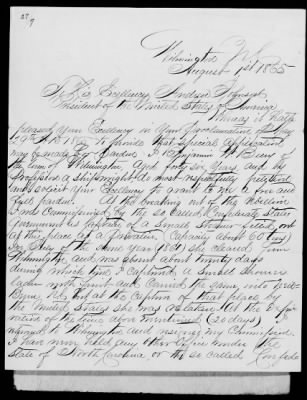 Wilmington N.C.
August 1st 1865
To His Excellency Andrew Johnson
President of the United States of America
Whereas it hath
pleased your Excellency in your Proclamation of May
29th A.D. 1865 to provide that special application
may be made for Pardon. I Benjamin W. of
the town of Wilmington, Aged forty six years and by
profession a shipwright do most respectfully
and solicit your Excellency to grant to me a free and
full pardon. At the breaking out of the Rebellion
I was Commissioned by the so called Confederate States
Government as of a small Schooner fitted out
at this place as a privateer, Capacity about 60 tons
In of the year 1861 she cleared from
Wilmington and was absent about twenty days
during which time I captured a small schooner
laden with fruit and carried the same into
and at the capture of that place by
the United States she was retaken. At the
of the time above mentioned (20 days) I
returned to Wilmington and resigned my Commission.
I have never held any other Office under the
State of North Carolina or the so called Confede